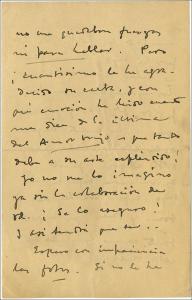 no me quedaban fuerzas
ni para hablar. Pero
¡cuantísimo le he agra-
decido su carta, y con
qué emoción he leido cuanto
me dice de la última
del Amor brujo a que tanto
debe a su arte espléndido!
Yo no me lo imagino
ya sin la colaboración de
Vd. ¡Se lo aseguro!
Y así tendrá que ser..
Espero con impaciencia
las fotos. Si no le he